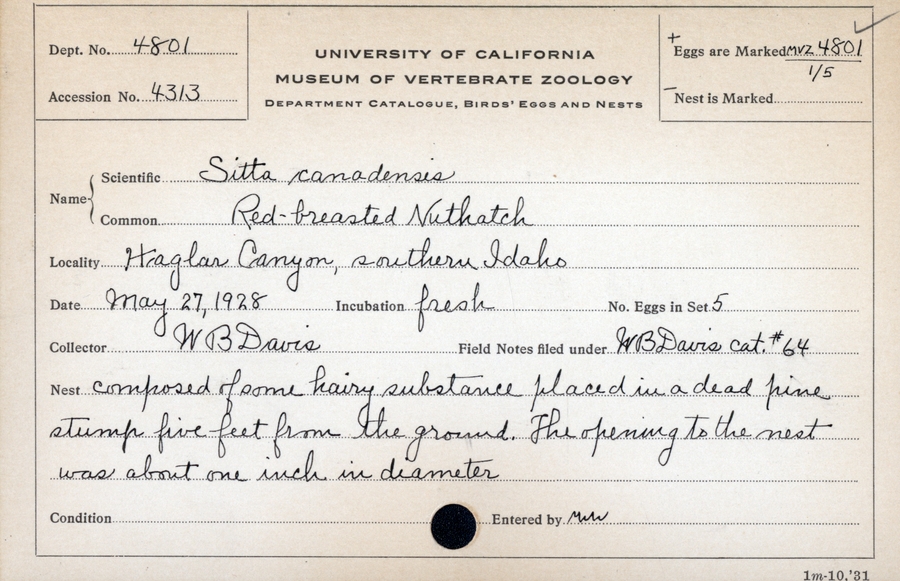 Dept. No. 4801
Accession No. 4313
UNIVERSITY OF CALIFORNIA
MUSEUM OF VERTEBRATE ZOOLOGY
DEPARTMENT CATALOGUE, BIRDS' EGGS AND NESTS
+ Eggs are Marked MVZ 4801
1/5
− Nest is Marked
Name { Scientific Sitta canadensis
Common Red-breasted Nuthatch
Locality Haglar Canyon, southern Idaho
Date May 27, 1928 Incubation fresh No. Eggs in Set 5
Collector W B Davis Field Notes filed under WB Davis cat. #64
Nest composed of some hairy substance placed in a dead pine
stump five feet from the ground. The opening to the nest
was about one inch in diameter
Condition Entered by
1m-10,'31